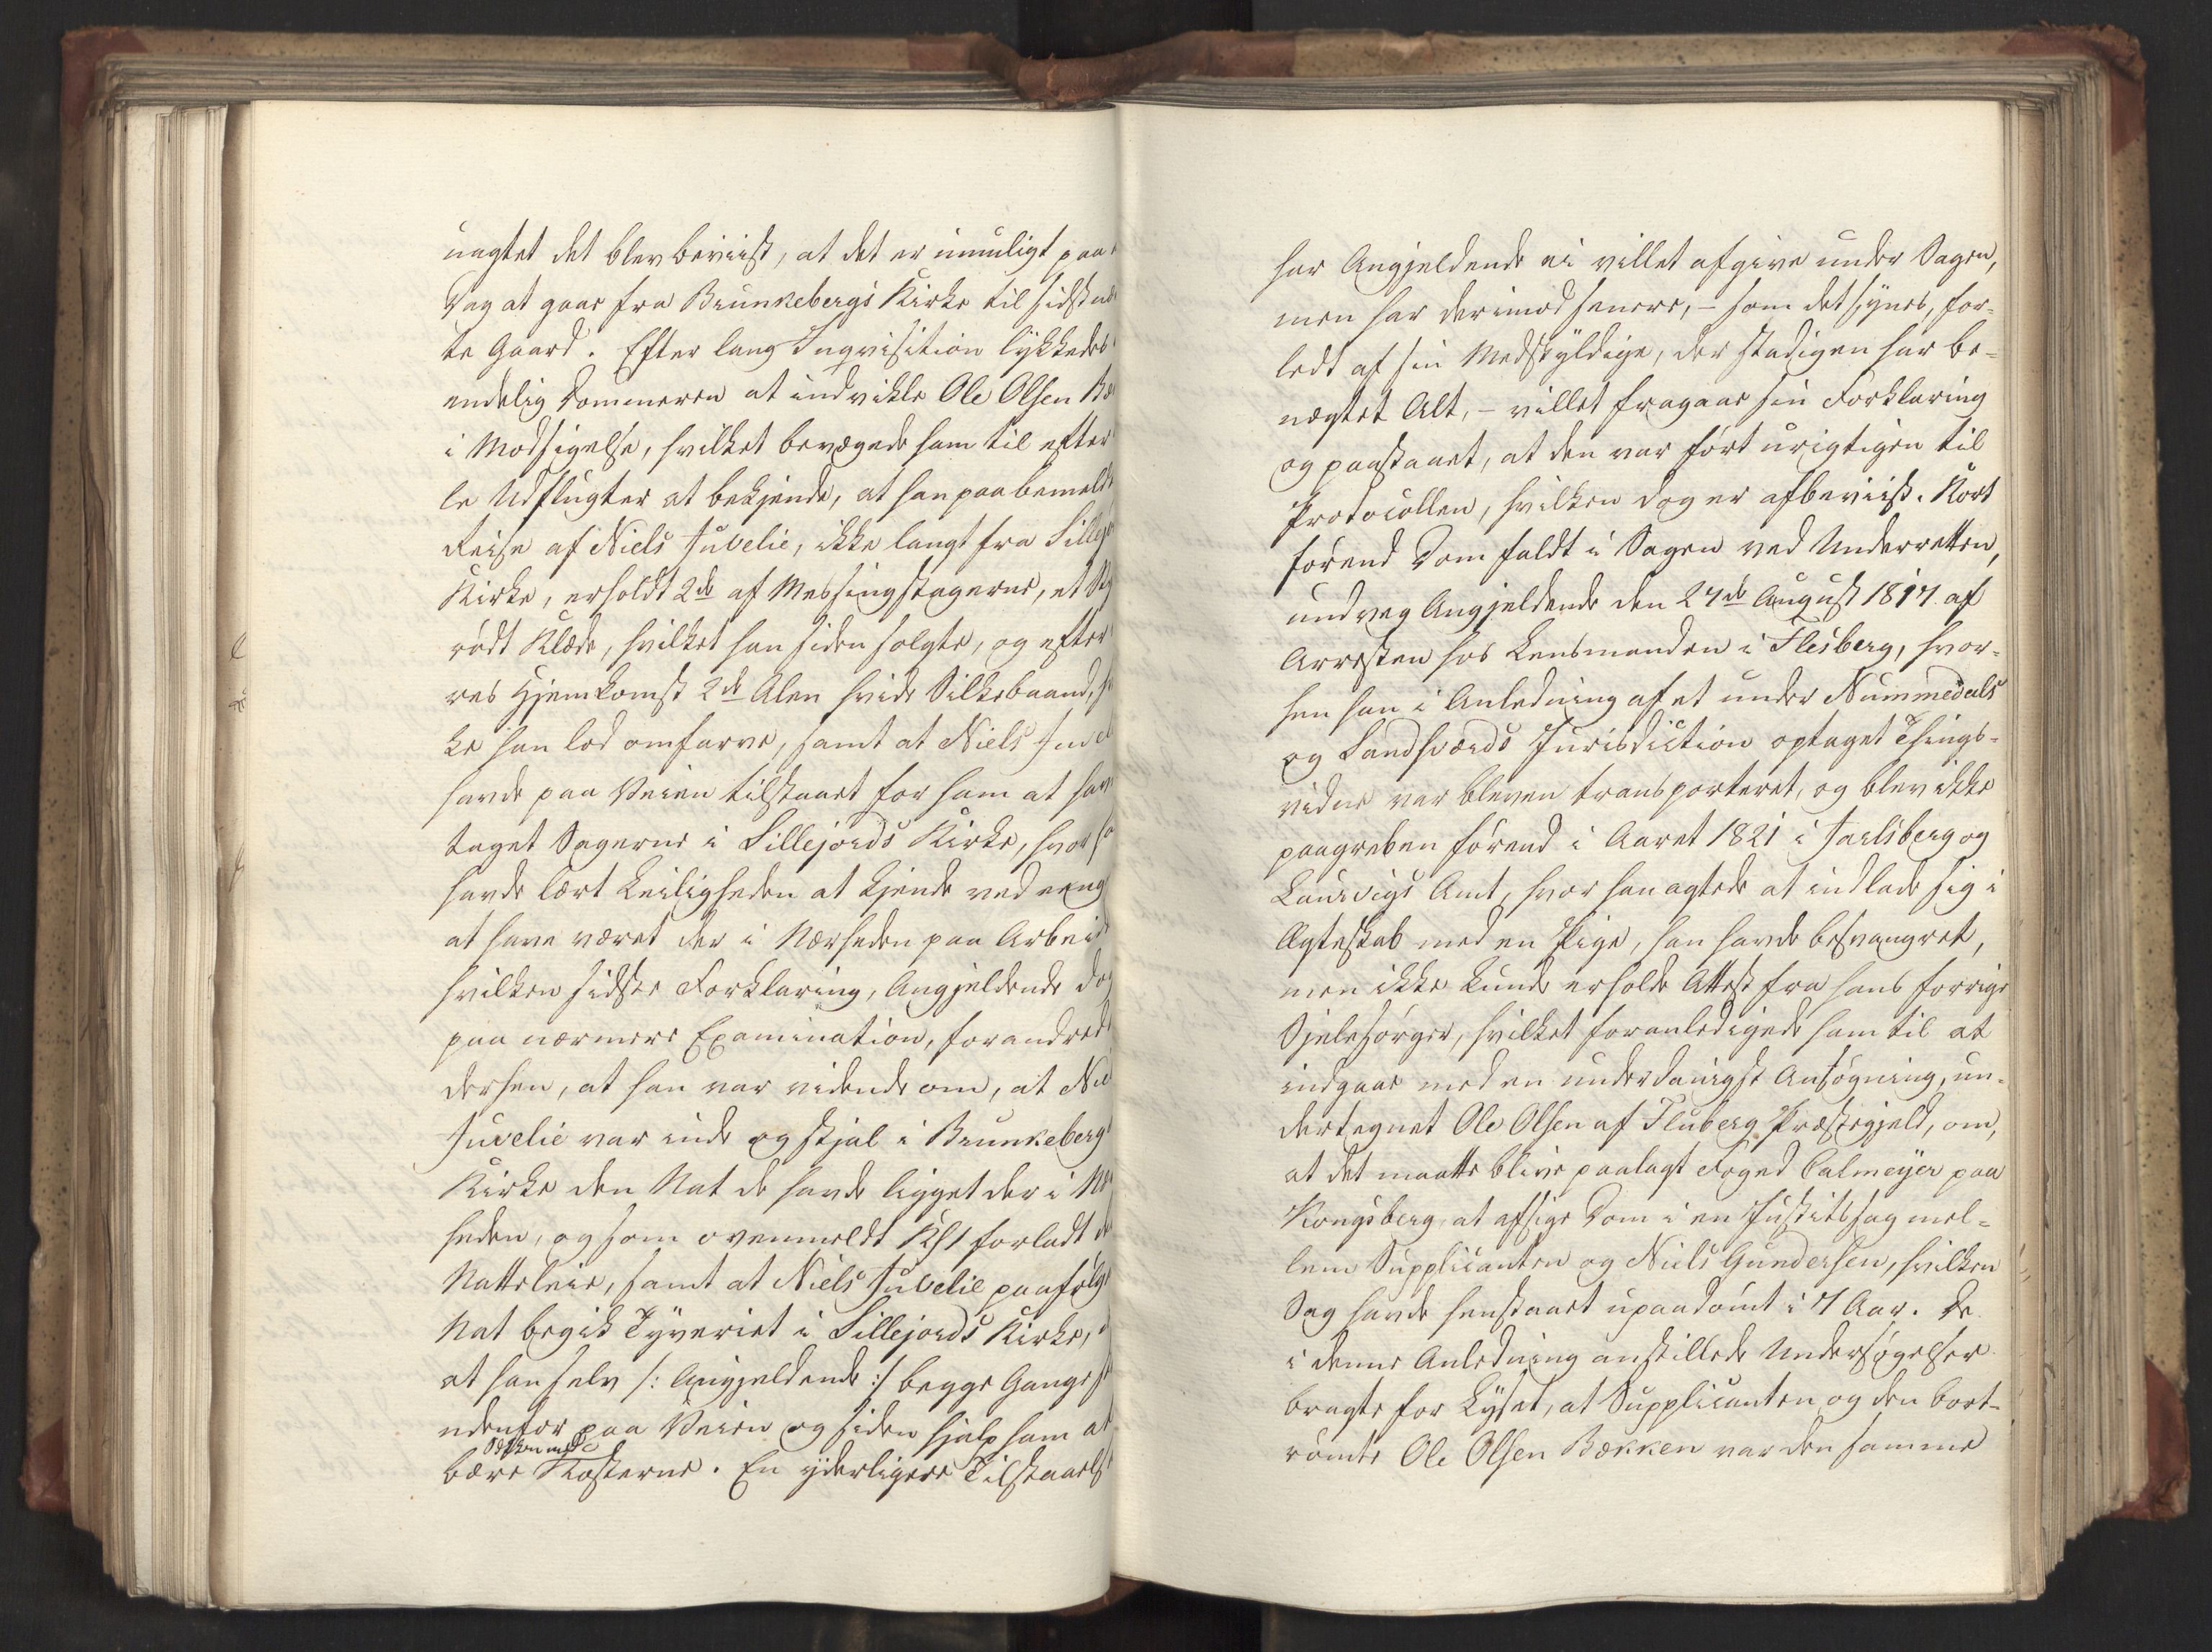 uagtet det blev beviist, at det er umuligt paa
Dag at gaae fra Brunkebergs Kirke til sidstnæ
te Gaard. Efter lang Inqvisition lykkedes
endelig Dommeren at indvikle Ole Olsen Bæ
i Modsigelse, hvilket bevægede ham til efter
le Udflugter at bekjende, at han paa bemeldt
Reise af Niels Juvelie, ikke langt fra Sillejo
Kirke, erholdt 2de af Messingstagerne, et St
rødt Klæde, hvilket han siden solgte, og efter
res Hjemkomst 2de Alen hvide Silkebaand, h
ke han lod omfarve, samt at Niels Juvel
havde paa Veien tilstaaet for ham at hav
taget Sagerne i Sillejords Kirke, hvor ha
havde lært Leiligheden at kjende ved eeng
at have været der i Nærheden paa Arbeid
hvilken sidste Forklaring, Angjeldende dog
paa nærmere Examination, forandred
derhen, at han var vidende om, at Nie
Juvelie var inde og stjal i Brunkeberg
Kirke den Nat de havde ligget der i Næ
heden, og som ovenmeldt Kl 1 forladt de
Natteleie, samt at Niels Juvelie paafølg
Nat begik Tyveriet i Sillejords Kirke, o
at han selv /: Angjeldende :/ begge Gange st
udenfor paa Veien og siden hjalp ham at
bære Kosterne. En yderligere Tilstaaelse
har Angjeldende ei villet afgive under Sagen,
men har derimod senere, – som det synes, for=
ledt af sin Medskyldige, der stadigen har be=
nægtet Alt, – villet fragaae sin Forklaring
og paastaaet, at den var ført urigtigen til
Protocollen, hvilken dog er afbeviist. Kort
førend Dom faldt i Sagen ved Underretten,
undveg Angjeldende den 27de August 1817 af
Arresten hos Lensmanden i Flesberg, hvor=
hen han i Anledning af et under Nummedals
og Sandsværds Jurisdiction optaget Things=
vidne var bleven transporteret, og blev ikke
paagreben førend i Aaret 1821 i Jarlsberg og
Laurvigs Amt, hvor han agtede at indlade sig i
Ægteskab med en Pige, han havde besvangret,
men ikke kunde erholde Attest fra hans forrige
Sjelesørger, hvilket foranledigede ham til at
indgaae med en underdanigst Ansøgning, un=
dertegnet Ole Olsen af Fluberg Præstegjeld, om,
at det maatte blive paalagt Foged Calmeyer paa
Kongsberg, at afsige Dom i en Justitssag mel=
lem Supplicanten og Niels Gundersen, hvilken
Sag havde henstaaet upaadømt i 7 Aar. De
i denne Anledning anstillede Undersøgelser
bragte for Lyset, at Supplicanten og den bort=
rømte Ole Olsen Bækken var den samme